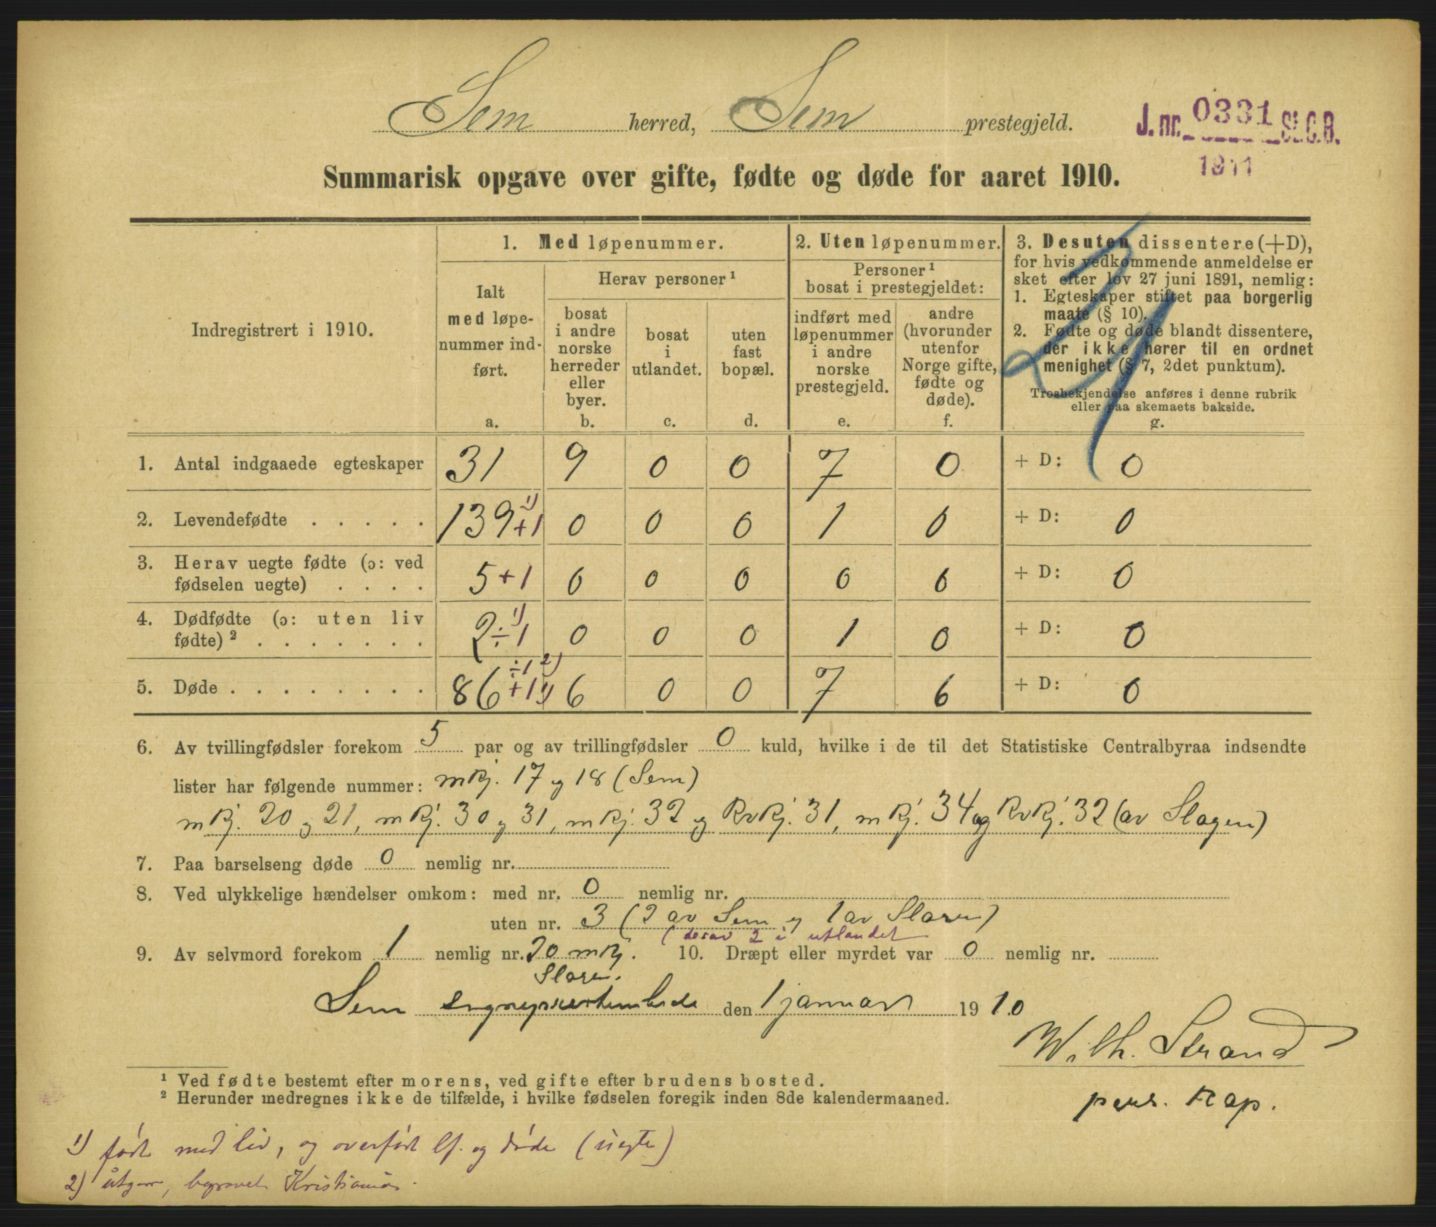 Sem herred, Sem prestegjeld.
J. nr. 0331 St. C. B.
1911
Summarisk opgave over gifte, fødte og døde for aaret 1910.
Indregistrert i 1910.
1. Med løpenummer.
Ialt
med løpe-
nummer ind-
ført.
a.
Herav personer ¹
bosat
i andre
norske
herreder
eller
byer.
b.
bosat
i
utlandet.
c.
uten
fast
bopæl.
d.
2. Uten løpenummer.
Personer ¹
bosat i prestegjeldet:
indført med
løpenummer
i andre
norske
prestegjeld.
e.
andre
(hvorunder
utenfor
Norge gifte,
fødte og
døde).
f.
3. Desuten dissentere (+D),
for hvis vedkommende anmeldelse er
sket efter lov 27 juni 1891, nemlig:
1. Egteskaper stiftet paa borgerlig
maate (§ 10).
2. Fødte og døde blandt dissentere,
der ikke hører til en ordnet
menighet (§ 7, 2det punktum).
Trosbekjendelse anføres i denne rubrik
eller paa skemaets bakside.
g.
1. Antal indgaaede egteskaper 31 9 0 0 7 0 + D: 0
2. Levendefødte . . . . . 139 +1 ¹) 0 0 0 1 0 + D: 0
3. Herav uegte fødte (ɔ: ved
fødselen uegte) . . . . 5 +1 0 0 0 0 0 + D: 0
4. Dødfødte (ɔ: uten liv
fødte) ² . . . . . . . 2 ÷1 ¹) 0 0 0 1 0 + D: 0
5. Døde . . . . . . . . 86 ÷1 ²) +1 ¹) 6 0 0 7 6 + D: 0
6. Av tvillingfødsler forekom 5 par og av trillingfødsler 0 kuld, hvilke i de til det Statistiske Centralbyraa indsendte
lister har følgende nummer: mkj. 17 og 18 (Sem)
mkj. 20 og 21, mkj. 30 og 31, mkj. 32 og Kvkj. 31, mkj. 34 og Kvkj. 32 (av Slagen)
7. Paa barselseng døde 0 nemlig nr.
8. Ved ulykkelige hændelser omkom: med nr. 0 nemlig nr.
uten nr. 3 (2 av Sem og 1 av Slagen)
(derav 2 i utlandet
9. Av selvmord forekom 1 nemlig nr. 20 mkj. 10. Dræpt eller myrdet var 0 nemlig nr.
Slagen.
Sem sogneprestembede den 1 januar 1910
Wilh. Strand
pers. kap.
¹ Ved fødte bestemt efter morens, ved gifte efter brudens bosted.
² Herunder medregnes ikke de tilfælde, i hvilke fødselen foregik inden 8de kalendermaaned.
1) født med liv, og overført lf. og døde (uegte)
2) utgaar, begravet Kristiania.